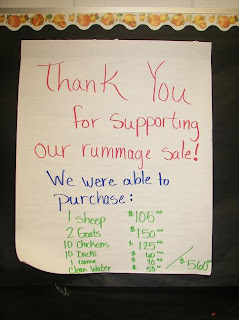 Thank You
for supporting
our rummage sale!
We were able to
purchase:
1 Sheep $105.00
2 Goats $150.00
10 Chickens $125.00
10 Ducks $60.00
1 Llama $70.00
Clean Water $50.00
$560